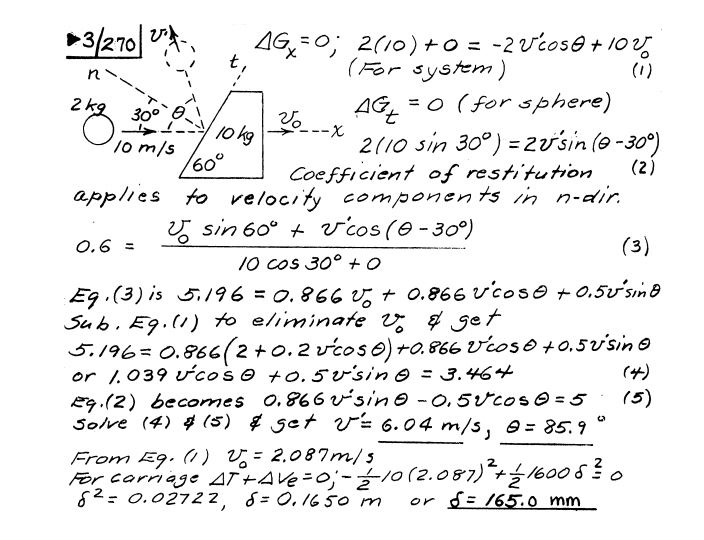 ▶3/270 v' ΔGₓ = 0; 2(10) + 0 = -2v'cosθ + 10v₀
n t, (For system) (1)
2 kg 30° θ 10 kg v₀ x ΔGₜ = 0 (for sphere)
10 m/s 60° 2(10 sin 30°) = 2v'sin(θ-30°)
Coefficient of restitution (2)
applies to velocity components in n-dir.
0.6 = (v₀ sin 60° + v'cos(θ-30°)) / (10 cos 30° + 0) (3)
Eq.(3) is 5.196 = 0.866 v₀ + 0.866 v'cosθ + 0.5v'sinθ
Sub. Eq.(1) to eliminate v₀ & get
5.196 = 0.866(2 + 0.2 v'cosθ) + 0.866 v'cosθ + 0.5v'sinθ
or 1.039 v'cosθ + 0.5v'sinθ = 3.464 (4)
Eq.(2) becomes 0.866v'sinθ - 0.5v'cosθ = 5 (5)
Solve (4) & (5) & get v' = 6.04 m/s, θ = 85.9°
From Eq. (1) v₀ = 2.087 m/s
For carriage ΔT + ΔVe = 0; -½10(2.087)² + ½1600δ² = 0
δ² = 0.02722, δ = 0.1650 m or δ = 165.0 mm